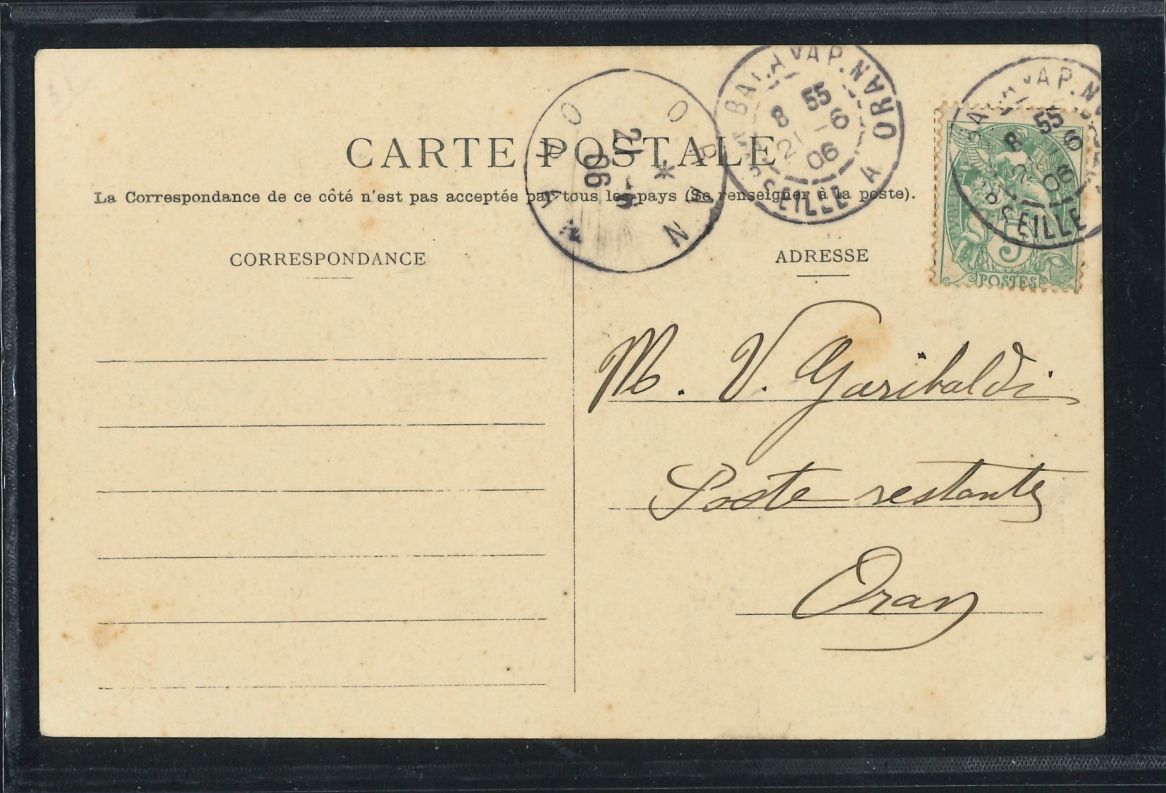 CARTE POSTALE
La Correspondance de ce côté n'est pas acceptée par tous les pays (Se renseigner à la poste).
CORRESPONDANCE
ADRESSE
M. V. Garibaldi
Poste restante
Oran
ORAN
ORAN
21 - 6
06
ORAN A
8 55
21 - 6
06
8 55
6
06
5
POSTES